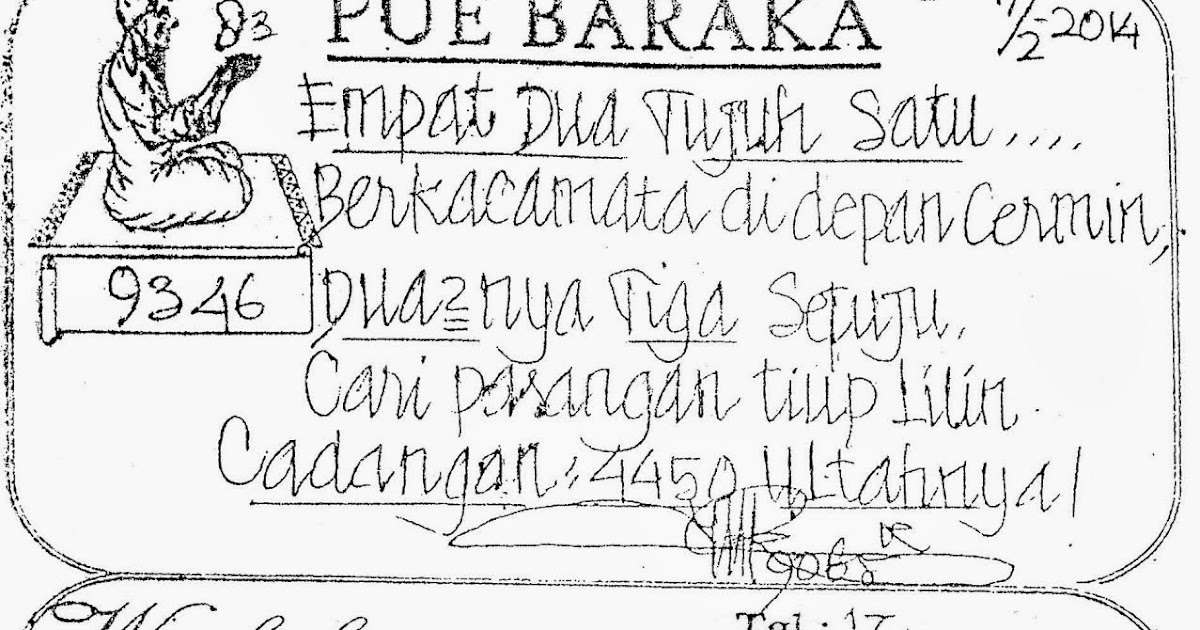 PUE BARAKA
2-2014
83
Empat Dua Tujuh Satu....
Berkacamata di depan Cermin,
9346
Dua2nya Tiga Setuju.
Cari pasangan tiup Lilin.
Cadangan: 4450 Ultahnya!
9065
Tgl: 17